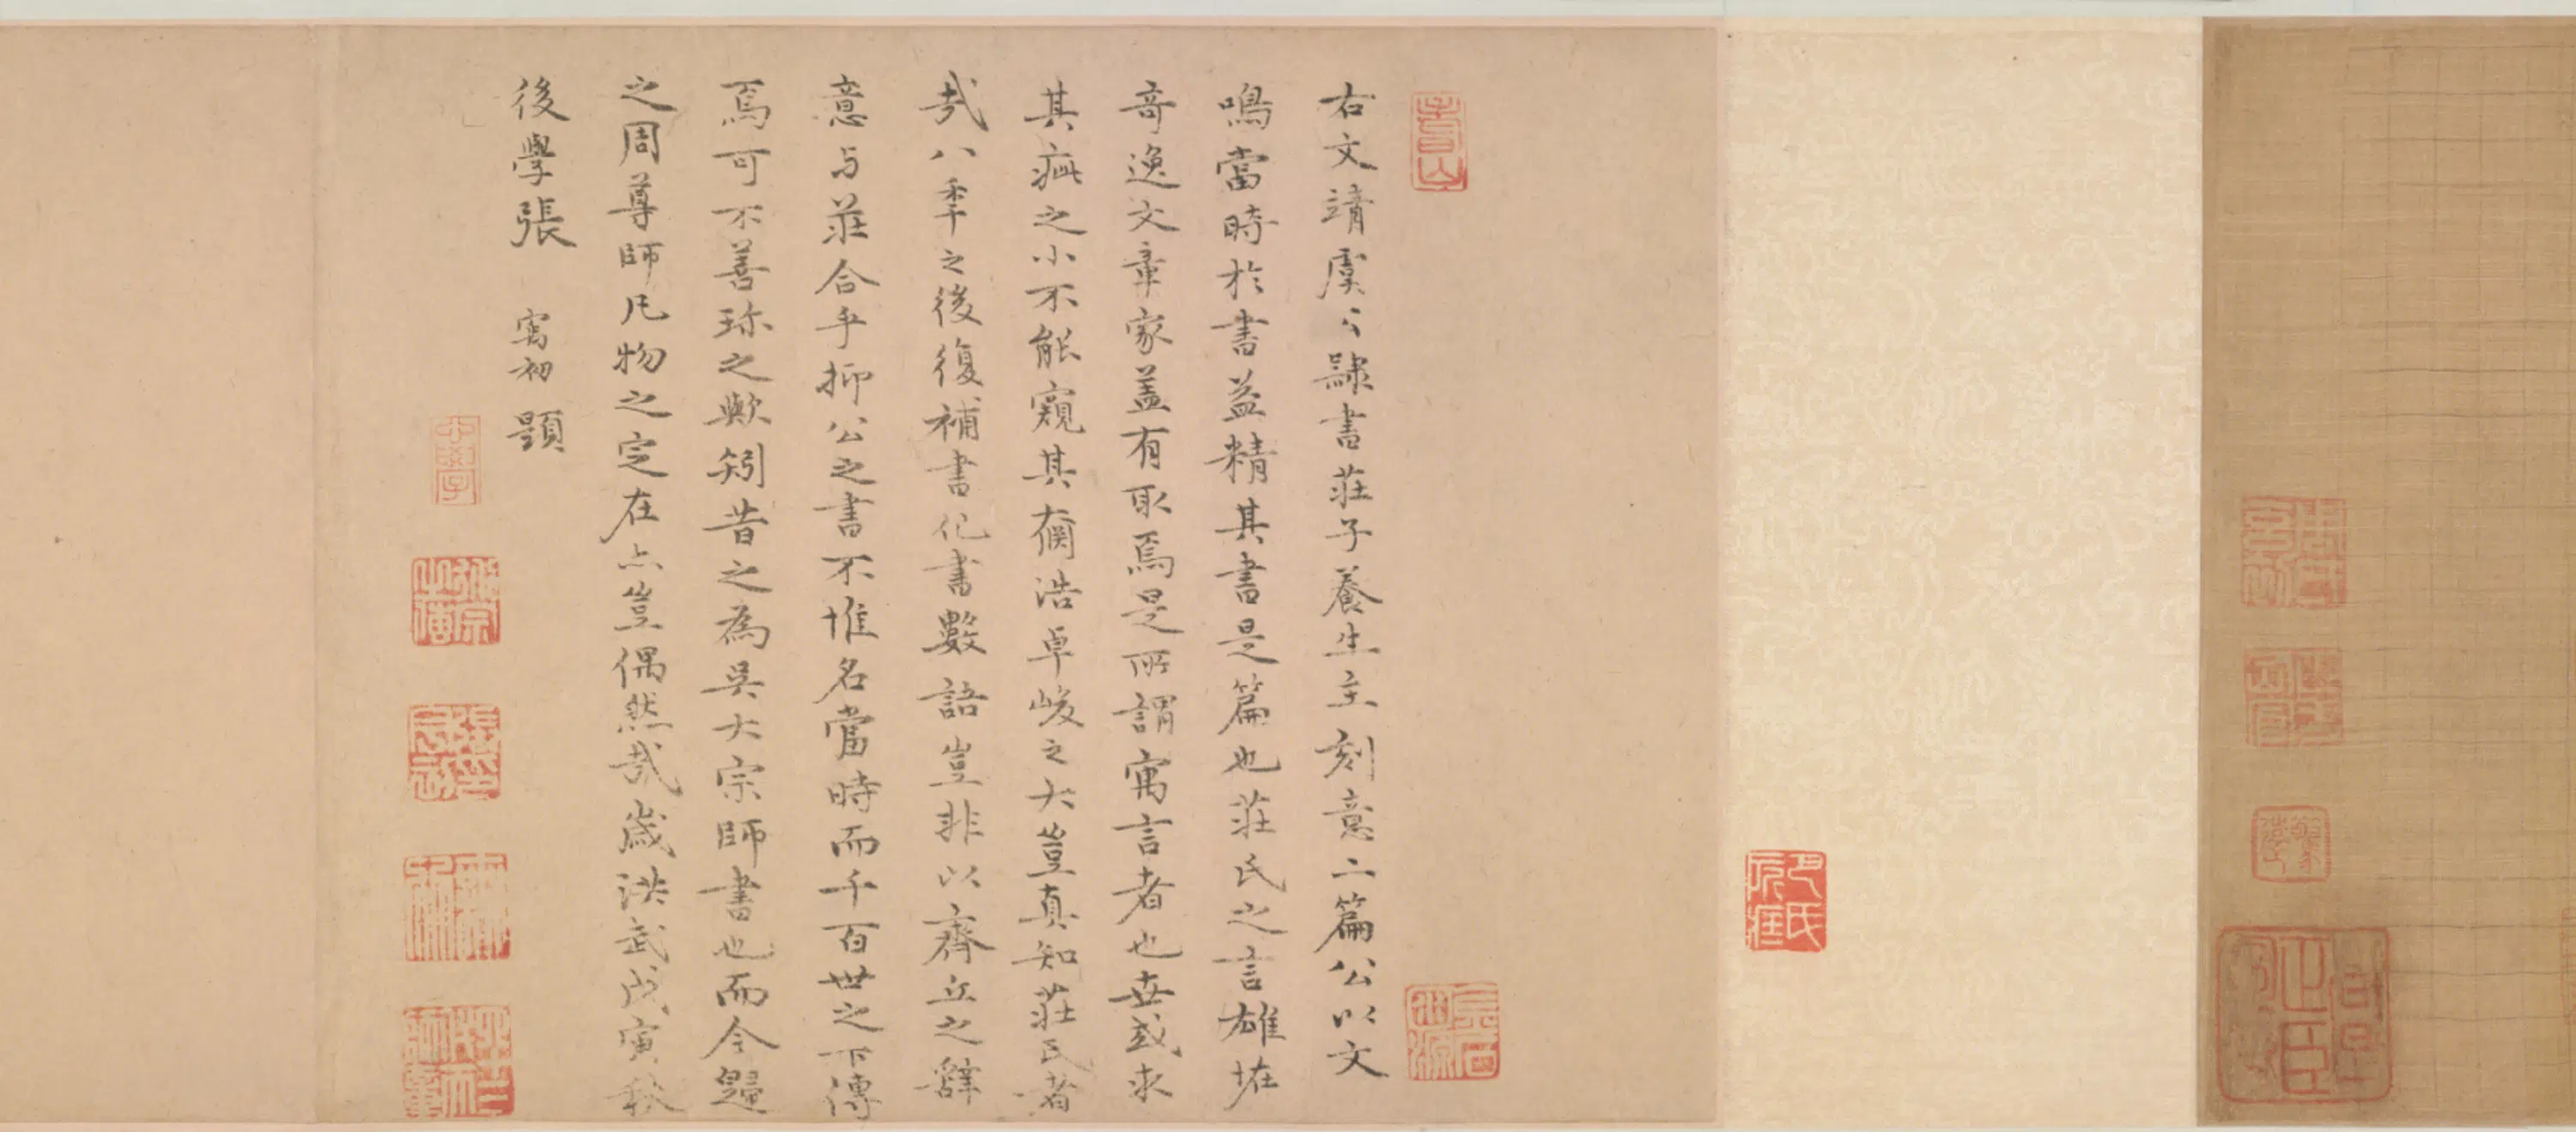 右文靖虞公隸書莊子養生主刻意二篇公以文
鳴當時於書益精其書是篇也莊氏之言雄
奇逸文章家盖有取焉是所謂寓言者也世或求
其疵之小不能窺其閎浩卓峻之大豈真知莊氏者
哉八秊之後復補書化書數語豈非以齊丘之辭
意与莊合乎抑公之書不惟名當時而千百世之下傳
焉可不善珎之歟矧昔之為吳大宗師書也而今歸
之周尊師凡物之定在亦豈偶然哉歲洪武戊寅秋
後學張 宇初 題